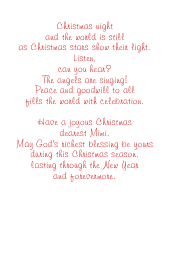 Christmas night
and the world is still
as Christmas stars show their light.
Listen,
can you hear?
The angels are singing!
Peace and goodwill to all
fills the world with celebration.
Have a joyous Christmas
dearest Mimi.
May God's richest blessing be yours
during this Christmas season,
lasting through the New Year
and forevermore.